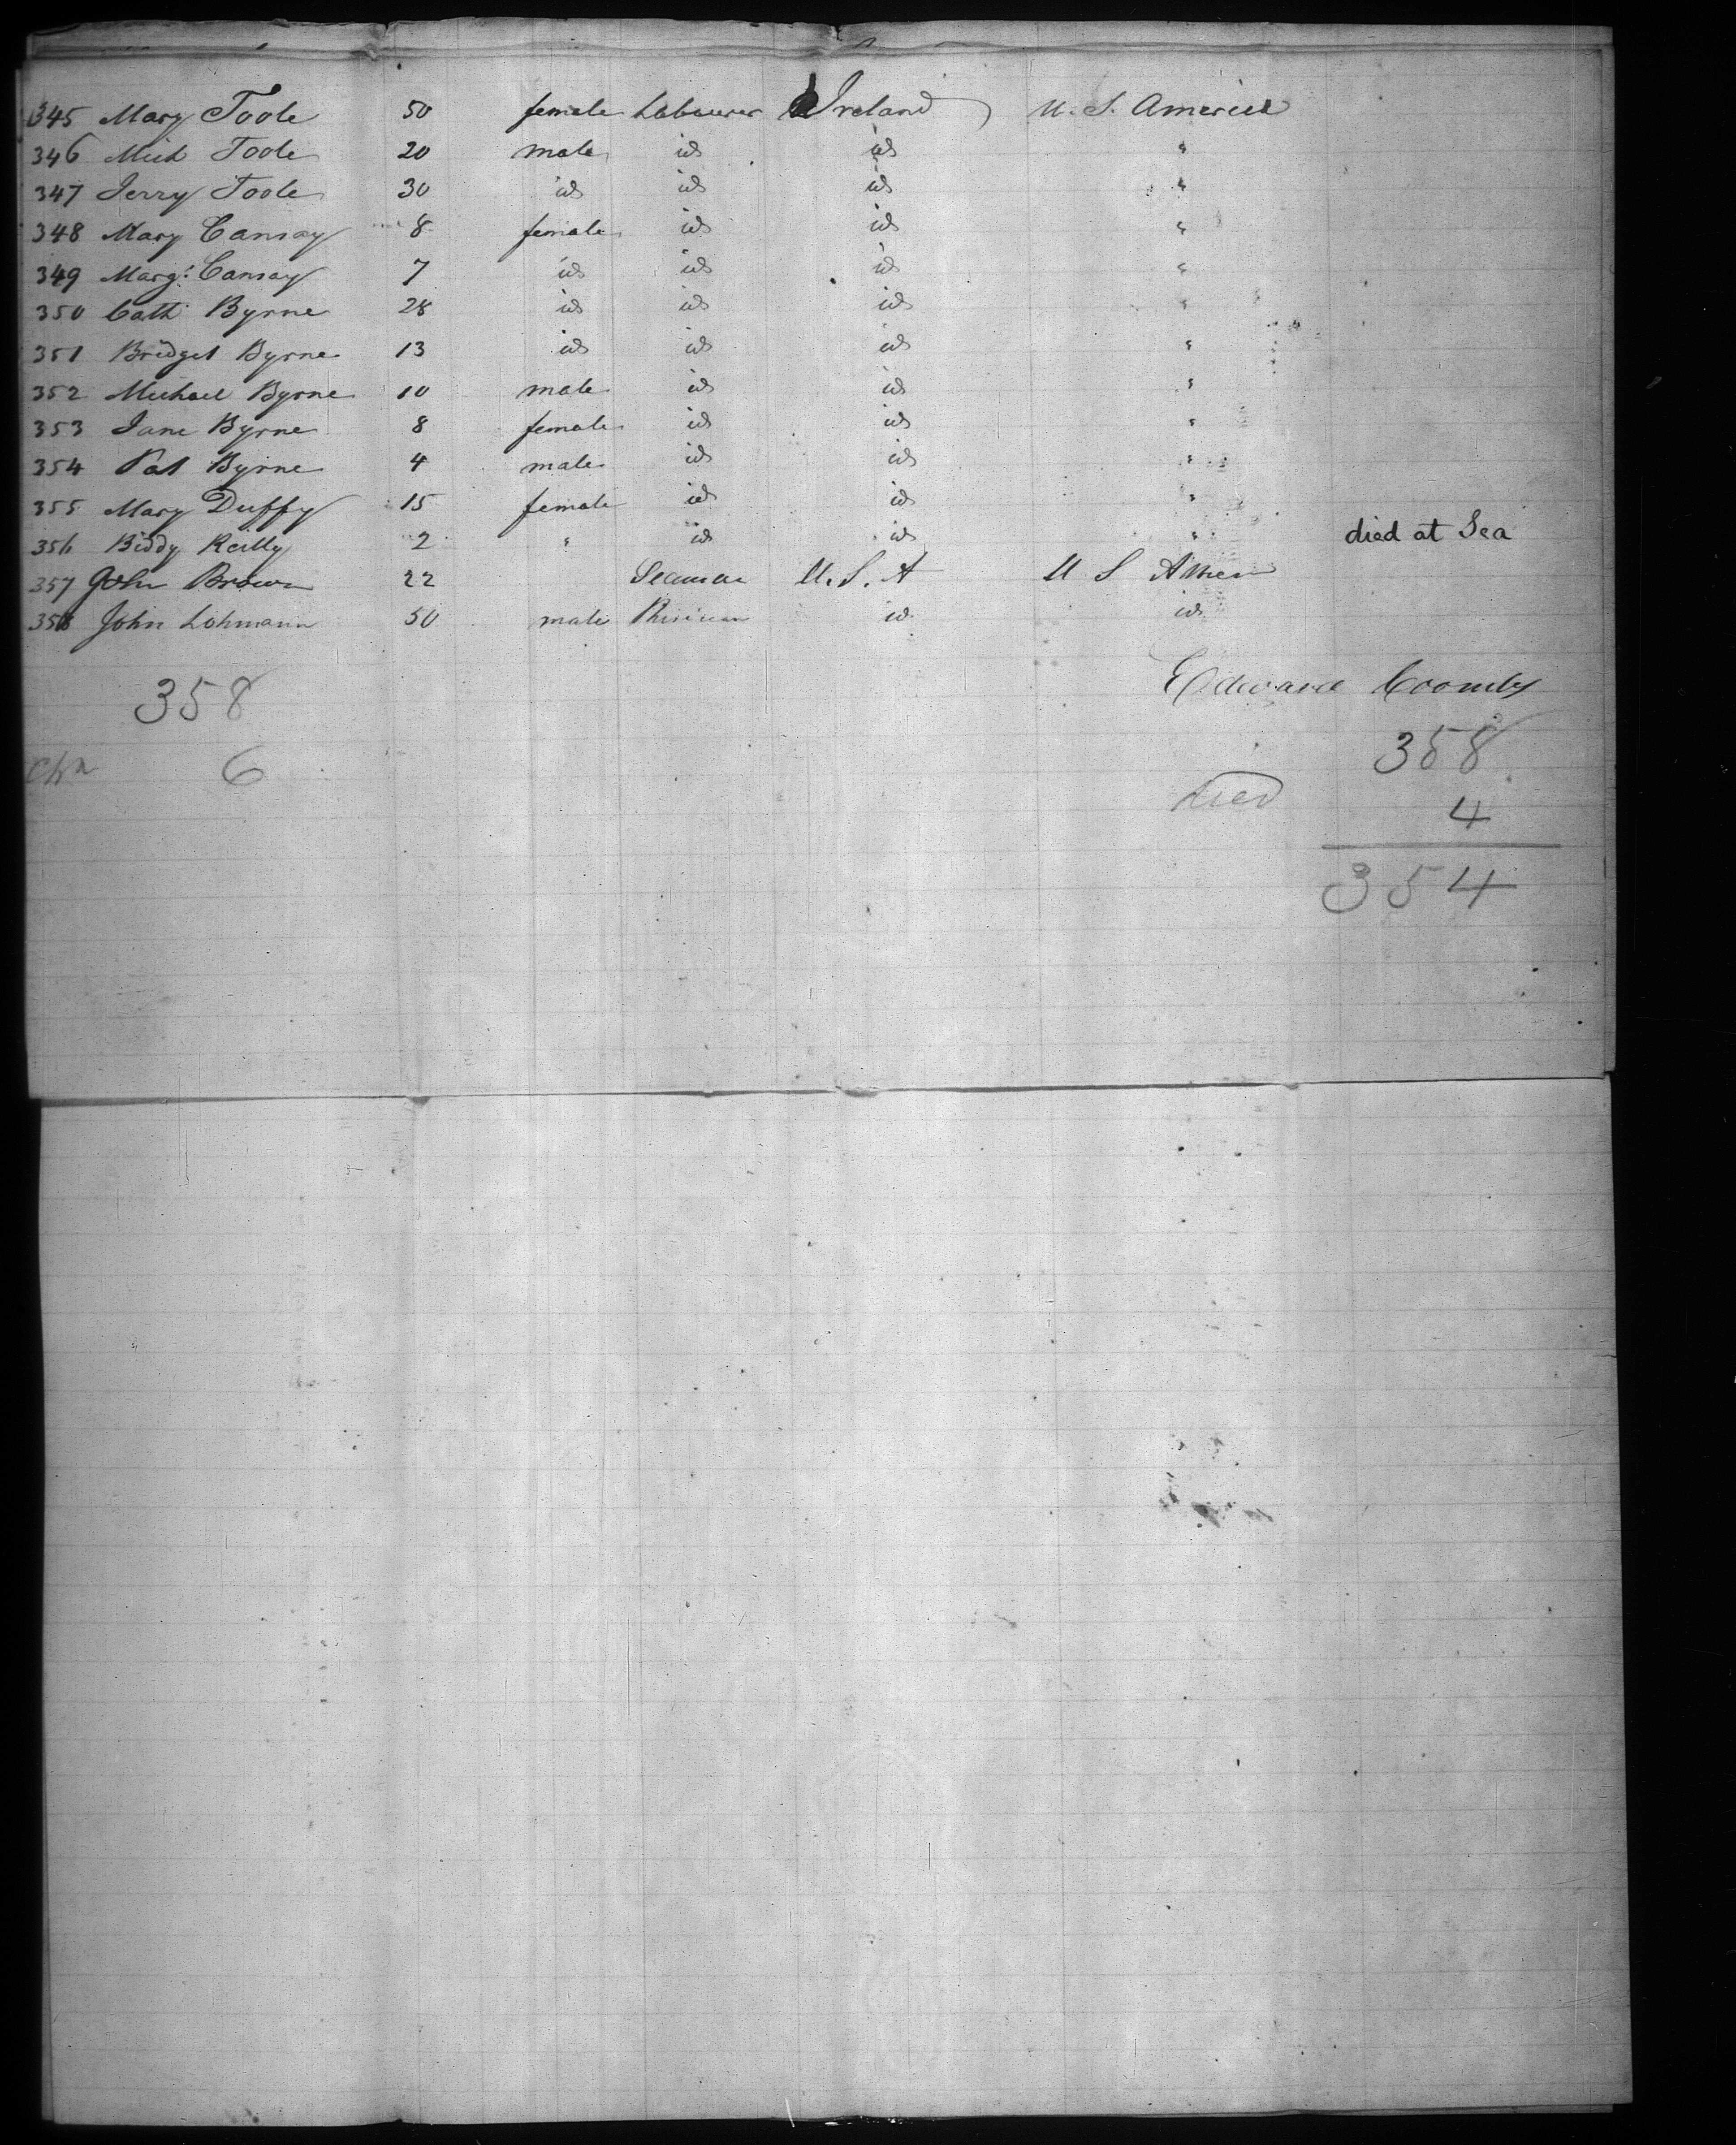 345 Mary Toole 50 female Labourer Ireland U. S. America
346 Mich Toole 20 male id id "
347 Jerry Toole 30 id id id "
348 Mary Canray 8 female id id "
349 Marg: Canray 7 id id id "
350 Cath Byrne 28 id id id "
351 Bridget Byrne 13 id id id "
352 Michael Byrne 10 male id id "
353 Jane Byrne 8 female id id "
354 Pat Byrne 4 male id id "
355 Mary Duffy 15 female id id "
356 Biddy Reilly 2 " id id " died at Sea
357 John Brown 22 Seaman U. S. A U S Amer
358 John Lohmann 50 male id id
Edward Coombs
358
358
6
died 4
354